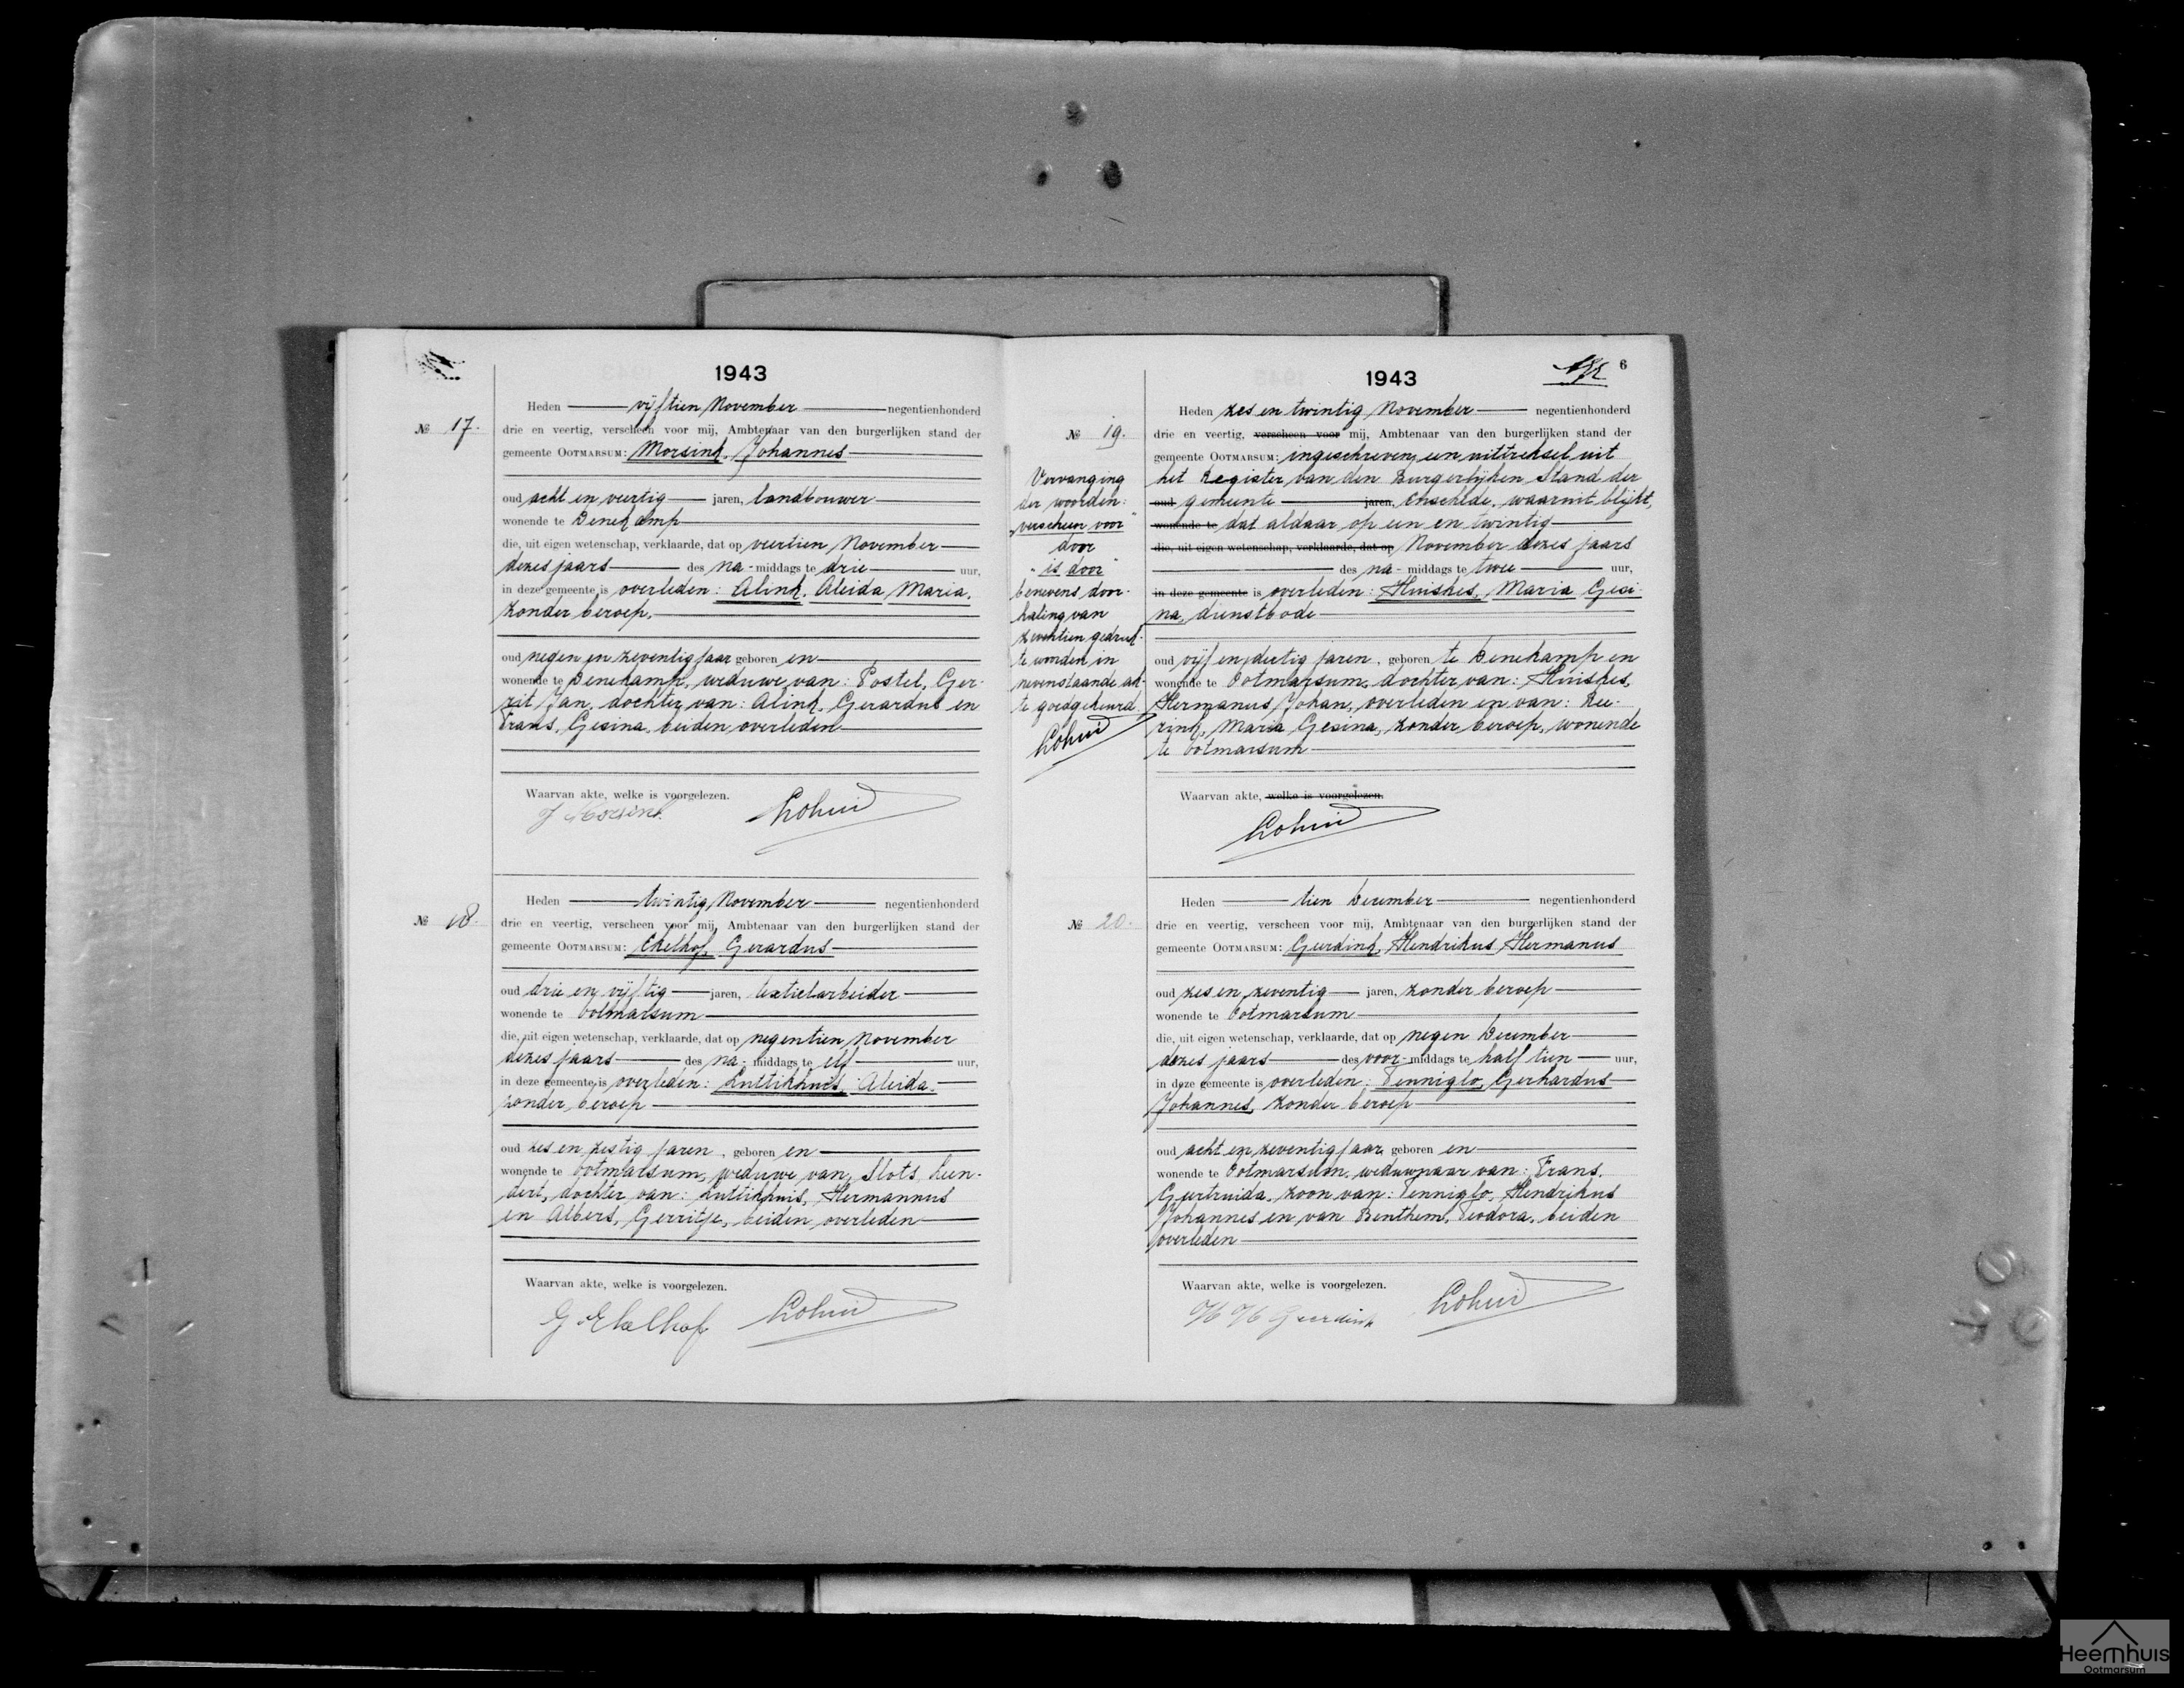 1943
№ 17.
Heden vijftien November negentienhonderd
drie en veertig, verscheen voor mij, Ambtenaar van den burgerlijken stand der
gemeente OOTMARSUM: Morsink, Johannes
oud acht en veertig jaren, landbouwer
wonende te Denekamp
die, uit eigen wetenschap, verklaarde, dat op veertien November
dezes jaars des na-middags te drie uur,
in deze gemeente is overleden: Alink, Aleida Maria,
zonder beroep,
oud negen en zeventig jaar geboren en
wonende te Denekamp, weduwe van: Postel, Ger-
rit Jan, dochter van: Alink, Gerardus en
Frans, Gesina, beiden overleden
Waarvan akte, welke is voorgelezen.
J Morsink.
№ 18.
Heden twintig November negentienhonderd
drie en veertig, verscheen voor mij, Ambtenaar van den burgerlijken stand der
gemeente OOTMARSUM: Ekelhof, Gerardus
oud drie en vijftig jaren, textielarbeider
wonende te Ootmarsum
die, uit eigen wetenschap, verklaarde, dat op negentien November
dezes jaars des na-middags te elf uur,
in deze gemeente is overleden: Luttikhuis, Aleida,
zonder beroep
oud zes en zestig jaren, geboren en
wonende te Ootmarsum, weduwe van, Slots, Leen-
dert, dochter van: Luttikhuis, Hermannus
en Albers, Gerritje, beiden overleden
Waarvan akte, welke is voorgelezen.
G Ekelhof
1943
6
№ 19.
Vervanging
der woorden:
"verscheen voor"
door
"is door"
benevens door-
haling van
zeventien gedruk-
te woorden in
nevenstaande ak-
te goedgekeurd.
Heden zes en twintig November negentienhonderd
drie en veertig, verscheen voor mij, Ambtenaar van den burgerlijken stand der
gemeente OOTMARSUM: ingeschreven een uittreksel uit
het Register van den Burgerlijken Stand der
oud gemeente jaren, Enschede, waaruit blijkt,
wonende te dat aldaar op een en twintig
die, uit eigen wetenschap, verklaarde, dat op November dezes jaars
des na-middags te twee uur,
in deze gemeente is overleden: Huiskes, Maria Gesi-
na, dienstbode
oud vijf en dertig jaren, geboren te Denekamp en
wonende te Ootmarsum, dochter van: Huiskes,
Hermanus Johan, overleden en van: Reu-
rink, Maria Gesina, zonder beroep, wonende
te Ootmarsum
Waarvan akte, welke is voorgelezen.
№ 20.
Heden tien December negentienhonderd
drie en veertig, verscheen voor mij, Ambtenaar van den burgerlijken stand der
gemeente OOTMARSUM: Geerdink, Hendrikus Hermanus
oud zes en zeventig jaren, zonder beroep
wonende te Ootmarsum
die, uit eigen wetenschap, verklaarde, dat op negen December
dezes jaars des voor-middags te half tien uur,
in deze gemeente is overleden: Tenniglo, Gerhardus
Johannes, zonder beroep
oud acht en zeventig jaar, geboren en
wonende te Ootmarsum, weduwnaar van: Frans,
Geertruida, zoon van: Tenniglo, Hendrikus
Johannes en van Benthem, Teodora, beiden
overleden
Waarvan akte, welke is voorgelezen.
H H Geerdink
Heemhuis
Ootmarsum